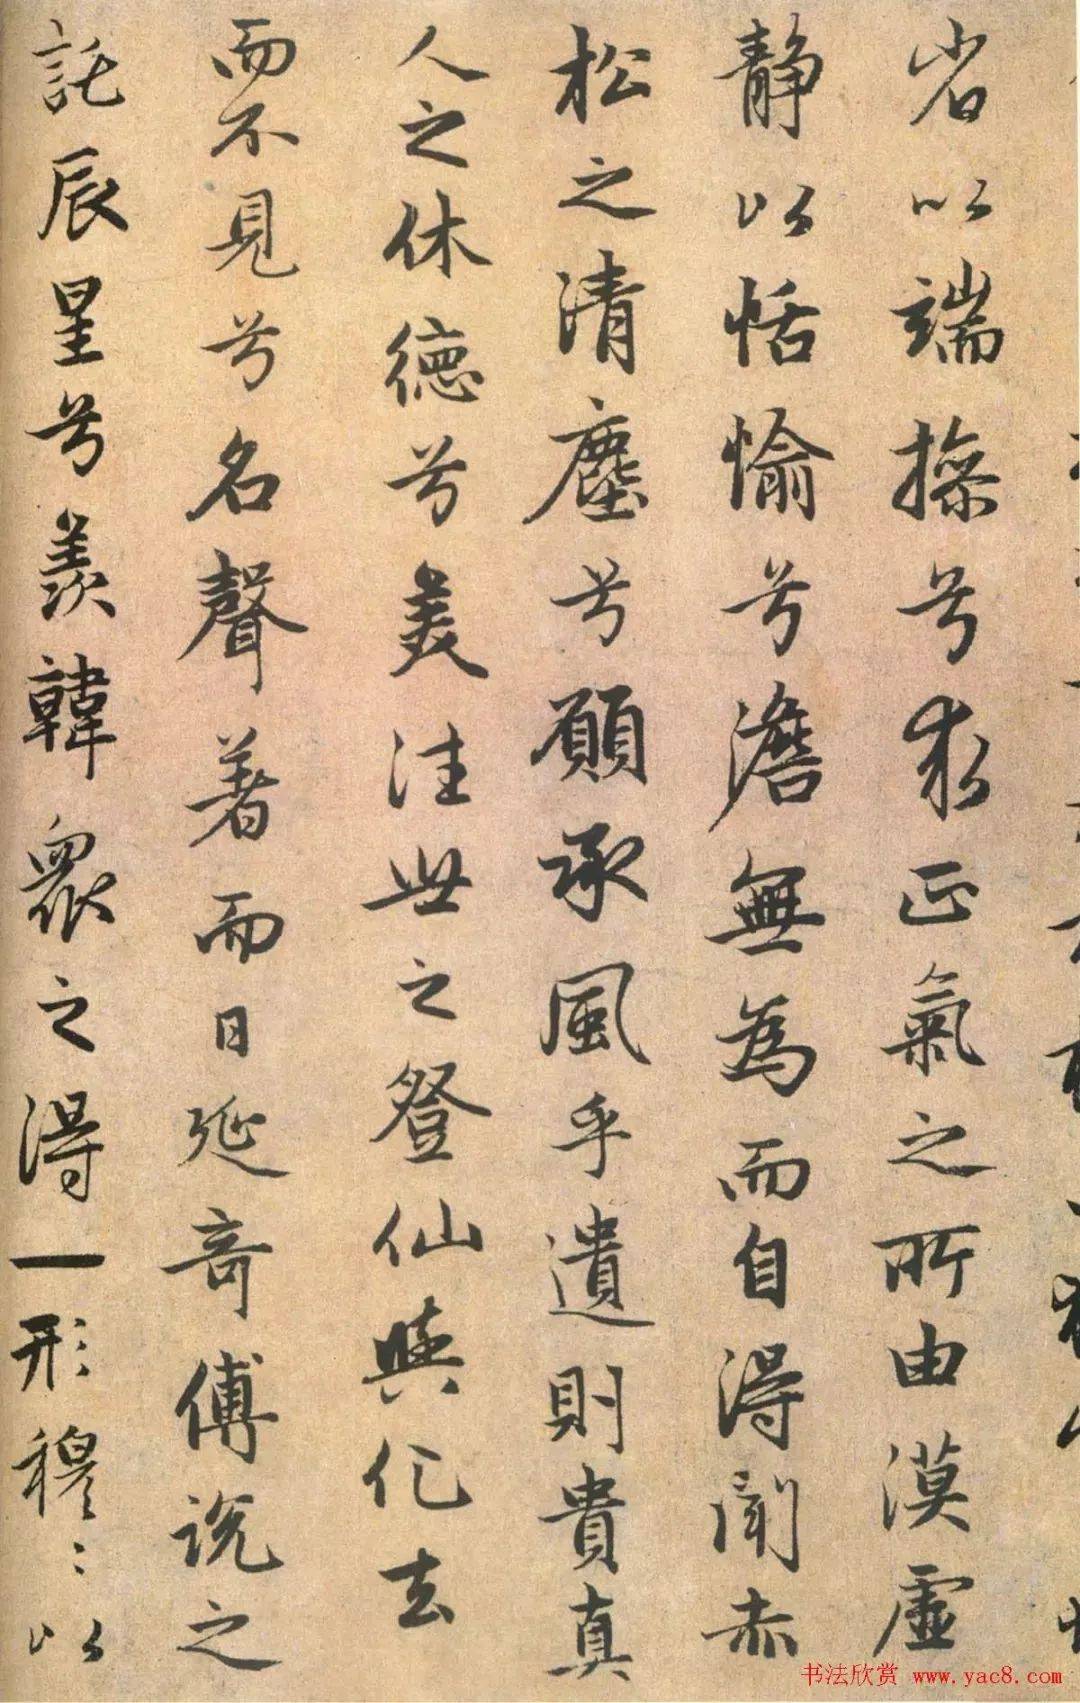 省以端操兮求正氣之所由漠虛
靜以恬愉兮澹無為而自得聞赤
松之清塵兮願承風乎遺則貴真
人之休德兮美往世之登仙與化去
而不見兮名聲著而日延奇傅說之
託辰星兮羨韓衆之得一形穆〻以
书法欣赏 www.yac8.com